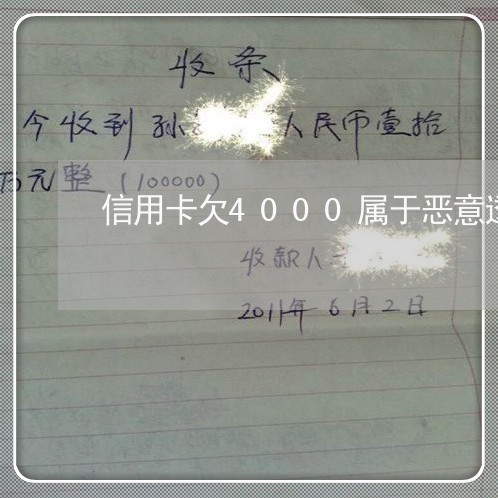 收条
今收到孙 人民币壹拾
万元整(100000)
信用卡欠4000属于恶意透
收款人
2011年6月2日